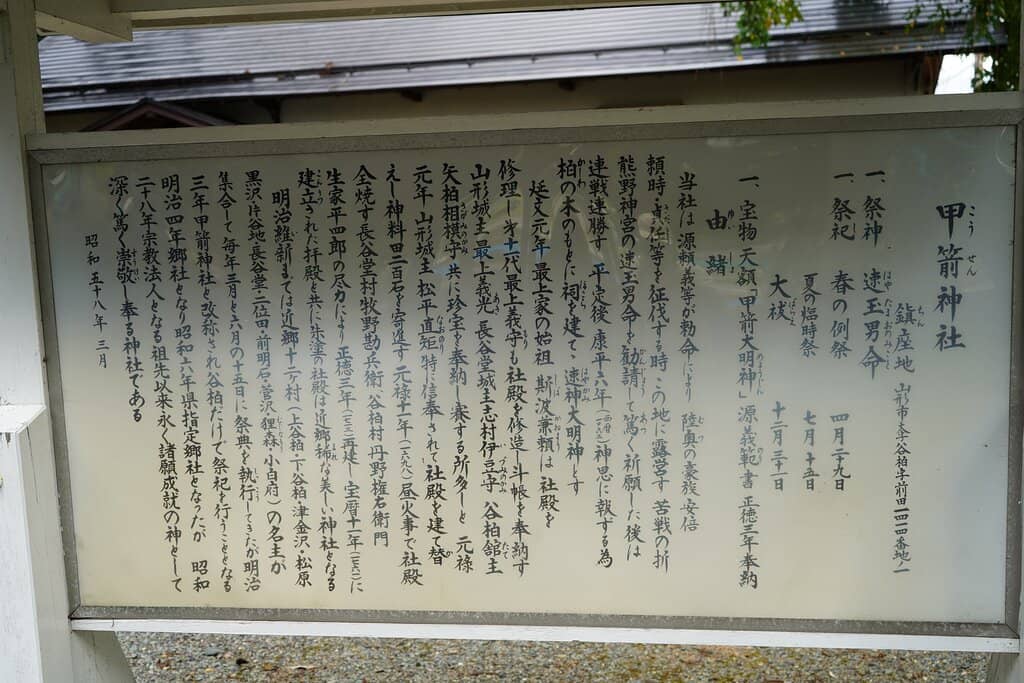 甲箭神社
鎮座地 山形市大字谷柏字前田一四四番地ノ一
一、祭神 速玉男命
一、祭祀 春の例祭 四月二十九日
夏の臨時祭 七月十五日
大祓 十二月三十一日
一、宝物 天額「甲箭大明神」源義範書 正徳三年奉納
由緒
当社は源頼義等が勅命により 陸奥の豪族 安倍
頼時・貞任等を征伐する時 この地に露営す 苦戦の折
熊野神宮の速玉男命を勧請して篤く祈願した後は
連戦連勝す 平定後 康平六年(西暦一〇六三)神思に報ずる為
柏の木のもとに祠を建て 速神大明神とす
延文元年 最上家の始祖 斯波兼頼は 社殿を
修理し 才十一代最上義守も社殿を修造し斗帳を奉納す
山形城主 最上義光 長谷堂城主志村伊豆守 谷柏舘主
矢柏相模守 共に珍宝を奉納し 賽する所多しと 元禄
元年 山形城主 松平直矩 特に信奉されて 社殿を建て替
えし神料田二百石を寄進す 元禄十一年(一六九八)昼火事で社殿
全焼す 長谷堂村牧野勘兵衛 谷柏村 丹野権右衛門
生家平四郎の尽力により 正徳三年 再建し 宝暦十一年(一七六一)に
建立された拝殿と共に朱塗の社殿は近郷稀な美しい神社となる
明治維新までは近郷十二ヶ村(上谷柏・下谷柏・津金沢・松原
黒沢・片谷地・長谷堂・二位田・前明石・菅沢・狸森・小白府)の名主が
集合して 毎年三月と六月の十五日に祭典を執行してきたが明治
三年甲箭神社と改称され 谷柏だけで 祭祀を行うこととなる
明治四年郷社となり昭和六年県指定郷社となったが 昭和
二十八年宗教法人となる 祖先以来永く諸願成就の神として
深く篤く崇敬し奉る神社である
昭和五十八年 三月